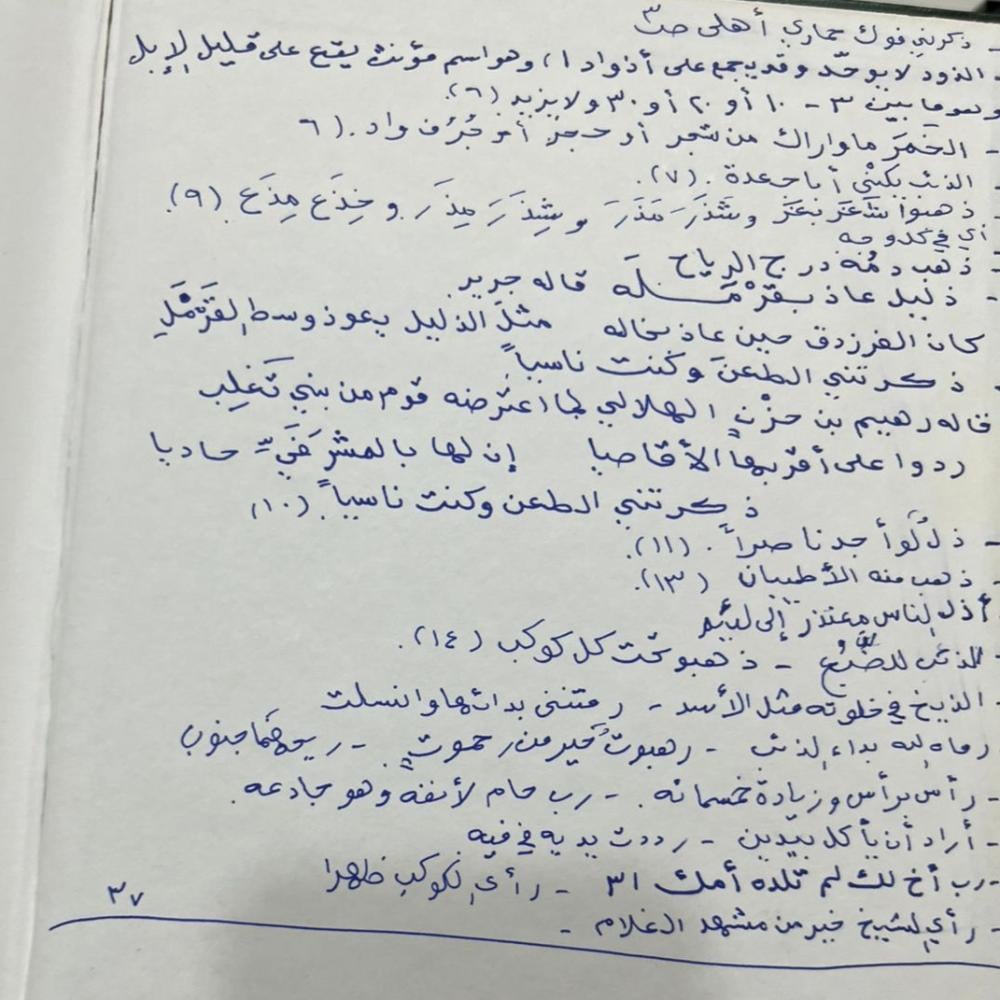 - ذكرني فوك حماري أهلي ص٣
- الذود لا يوحّد وقد يجمع على أذواد ا) وهو اسم مؤنث يقع على قليل الإبل
وهو ما بين ٣ - ١٠ أو ٢٠ أو ٣٠ ولا يزيد (٦).
- الخمَر ما واراك من شجر أو حجر أو جُرُف واد. (٦
- الذئب يكنْى أبا جعدة. (٧).
- ذهبوا شَغَرَ بَغَرَ وشَذَرَ مَذَرَ وشِذَرَ مِذَرَ و خِذَع مِذَع (٩).
أي في كل وجه
- ذهب دمُه درج الرياح
- ذليل عاذ بقرْمَلَه قاله جرير
كان الفرزدق حين عاذ بخاله مثلَ الذليل يعوذ وسط القَرْمَلِ
- ذكرتني الطعنَ وكنت ناسياً
قاله رهيم بن حزْنٍ الهلالي لما اعترضه قوم من بني تَغلِب
ردوا على أقربها الأقاصيا إن لها بالمشرَفيِّ حاديا
ذكرتني الطعن وكنت ناسياً. (١٠)
- ذلّ لو أجد ناصراً. (١١).
- ذهب منه الأطيبان (١٣).
أذل الناس معتذر إلى لئيم
- الذئب للضَّبُع - ذهبوا تحت كل كوكب (١٤).
- الذيخ في خلوته مثل الأسد - رمتني بدائها وانسلت
رماه الله بداء الذئب - رهبوتٌ خير من رحموتٍ. - ريحهما جنوب
- رأس برأس وزيادة خمسمائه. - رب حام لأنفه وهو جادعه.
- أراد أن يأكل بيدين - رددت يديه في فيه
- رب أخ لك لم تلده أمك ٣١ - رأى الكوكب ظهرا
- رأي الشيخ خير من مشهد الغلام -
٣٧